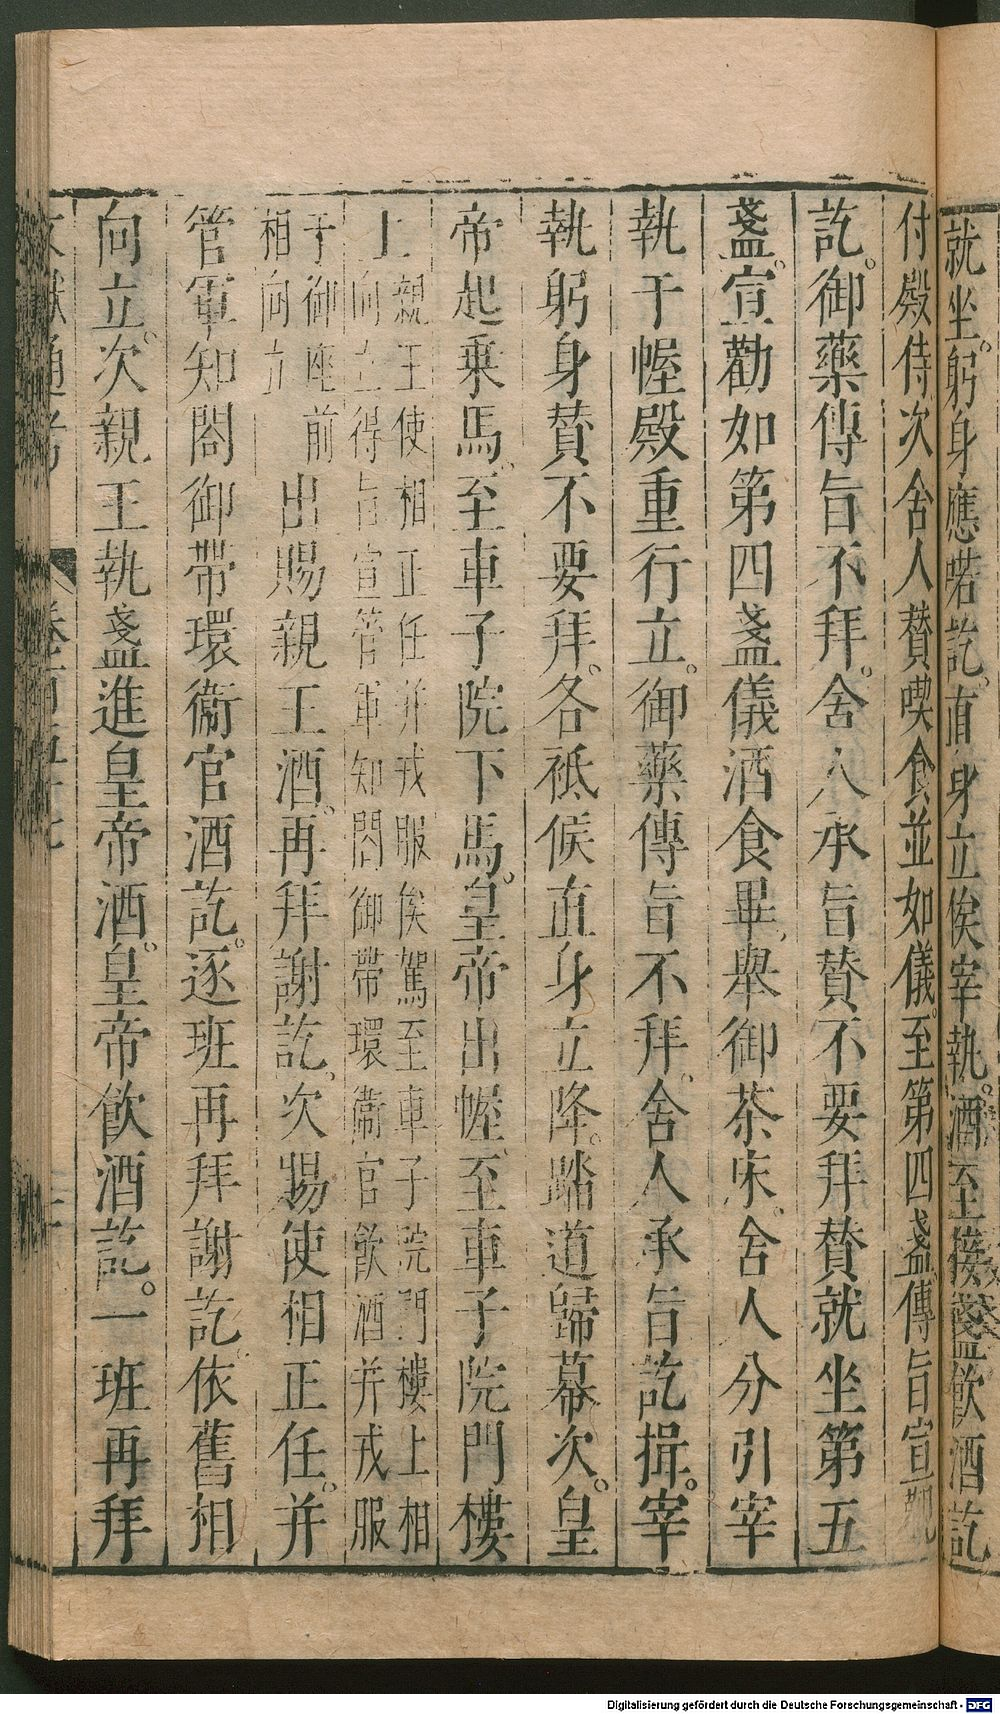 就坐躬身應喏訖直身立俟宰執酒至接盞飲酒訖
付殿侍次舍人賛喫食並如儀至第四盞傳旨宣勸
訖御藥傳旨不拜舍人承旨賛不要拜賛就坐第五
盞宣勸如第四盞儀酒食畢舉御茶床舍人分引宰
執干幄殿重行立御藥傳旨不拜舍人承旨訖揖宰
執躬身賛不要拜各祗候直身立降踏道歸幕次皇
帝起乗馬至車子院下馬皇帝出幄至車子院門樓
上
親王使相正任并戎服俟駕至車子院門樓上相
向立得旨宣管軍知閤御帶環衞官飲酒并戎服
于御座前
相向立
出賜親王酒再拜謝訖次賜使相正任并
管軍知閤御帶環衞官酒訖逐班再拜謝訖依舊相
向立次親王執盞進皇帝酒皇帝飲酒訖一班再拜
Digitalisierung gefördert durch die Deutsche Forschungsgemeinschaft - DFG